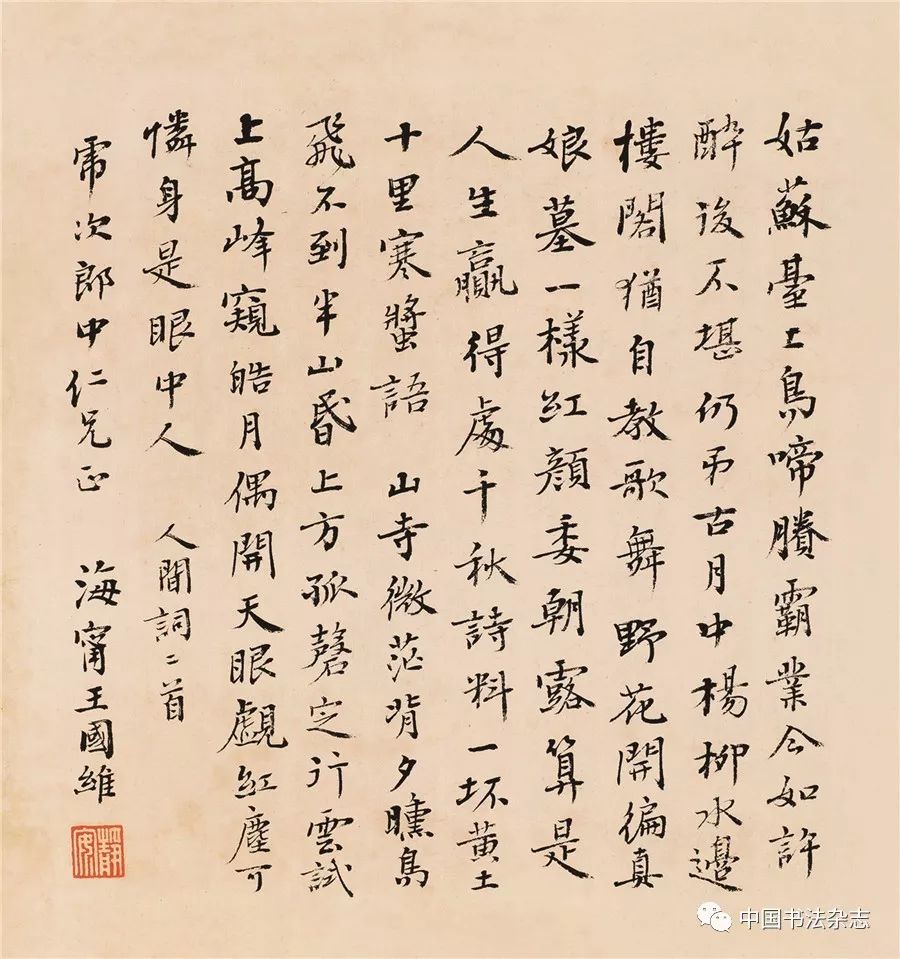 姑蘇臺上烏啼賸霸業今如許
醉後不堪仍弔古月中楊柳水邊
樓閣猶自教歌舞野花開徧真
娘墓一樣紅顏委朝露算是
人生贏得處千秋詩料一坏黃土
十里寒螿語 山寺微茫背夕曛鳥
飛不到半山昏上方孤磬定行雲試
上高峰窺皓月偶開天眼覷紅塵可
憐身是眼中人 人間詞二首
次郎中仁兄正 海甯王國維
靜安
中国书法杂志